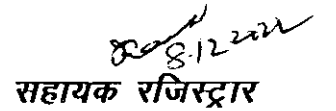 8.12.2022
सहायक रजिस्ट्रार